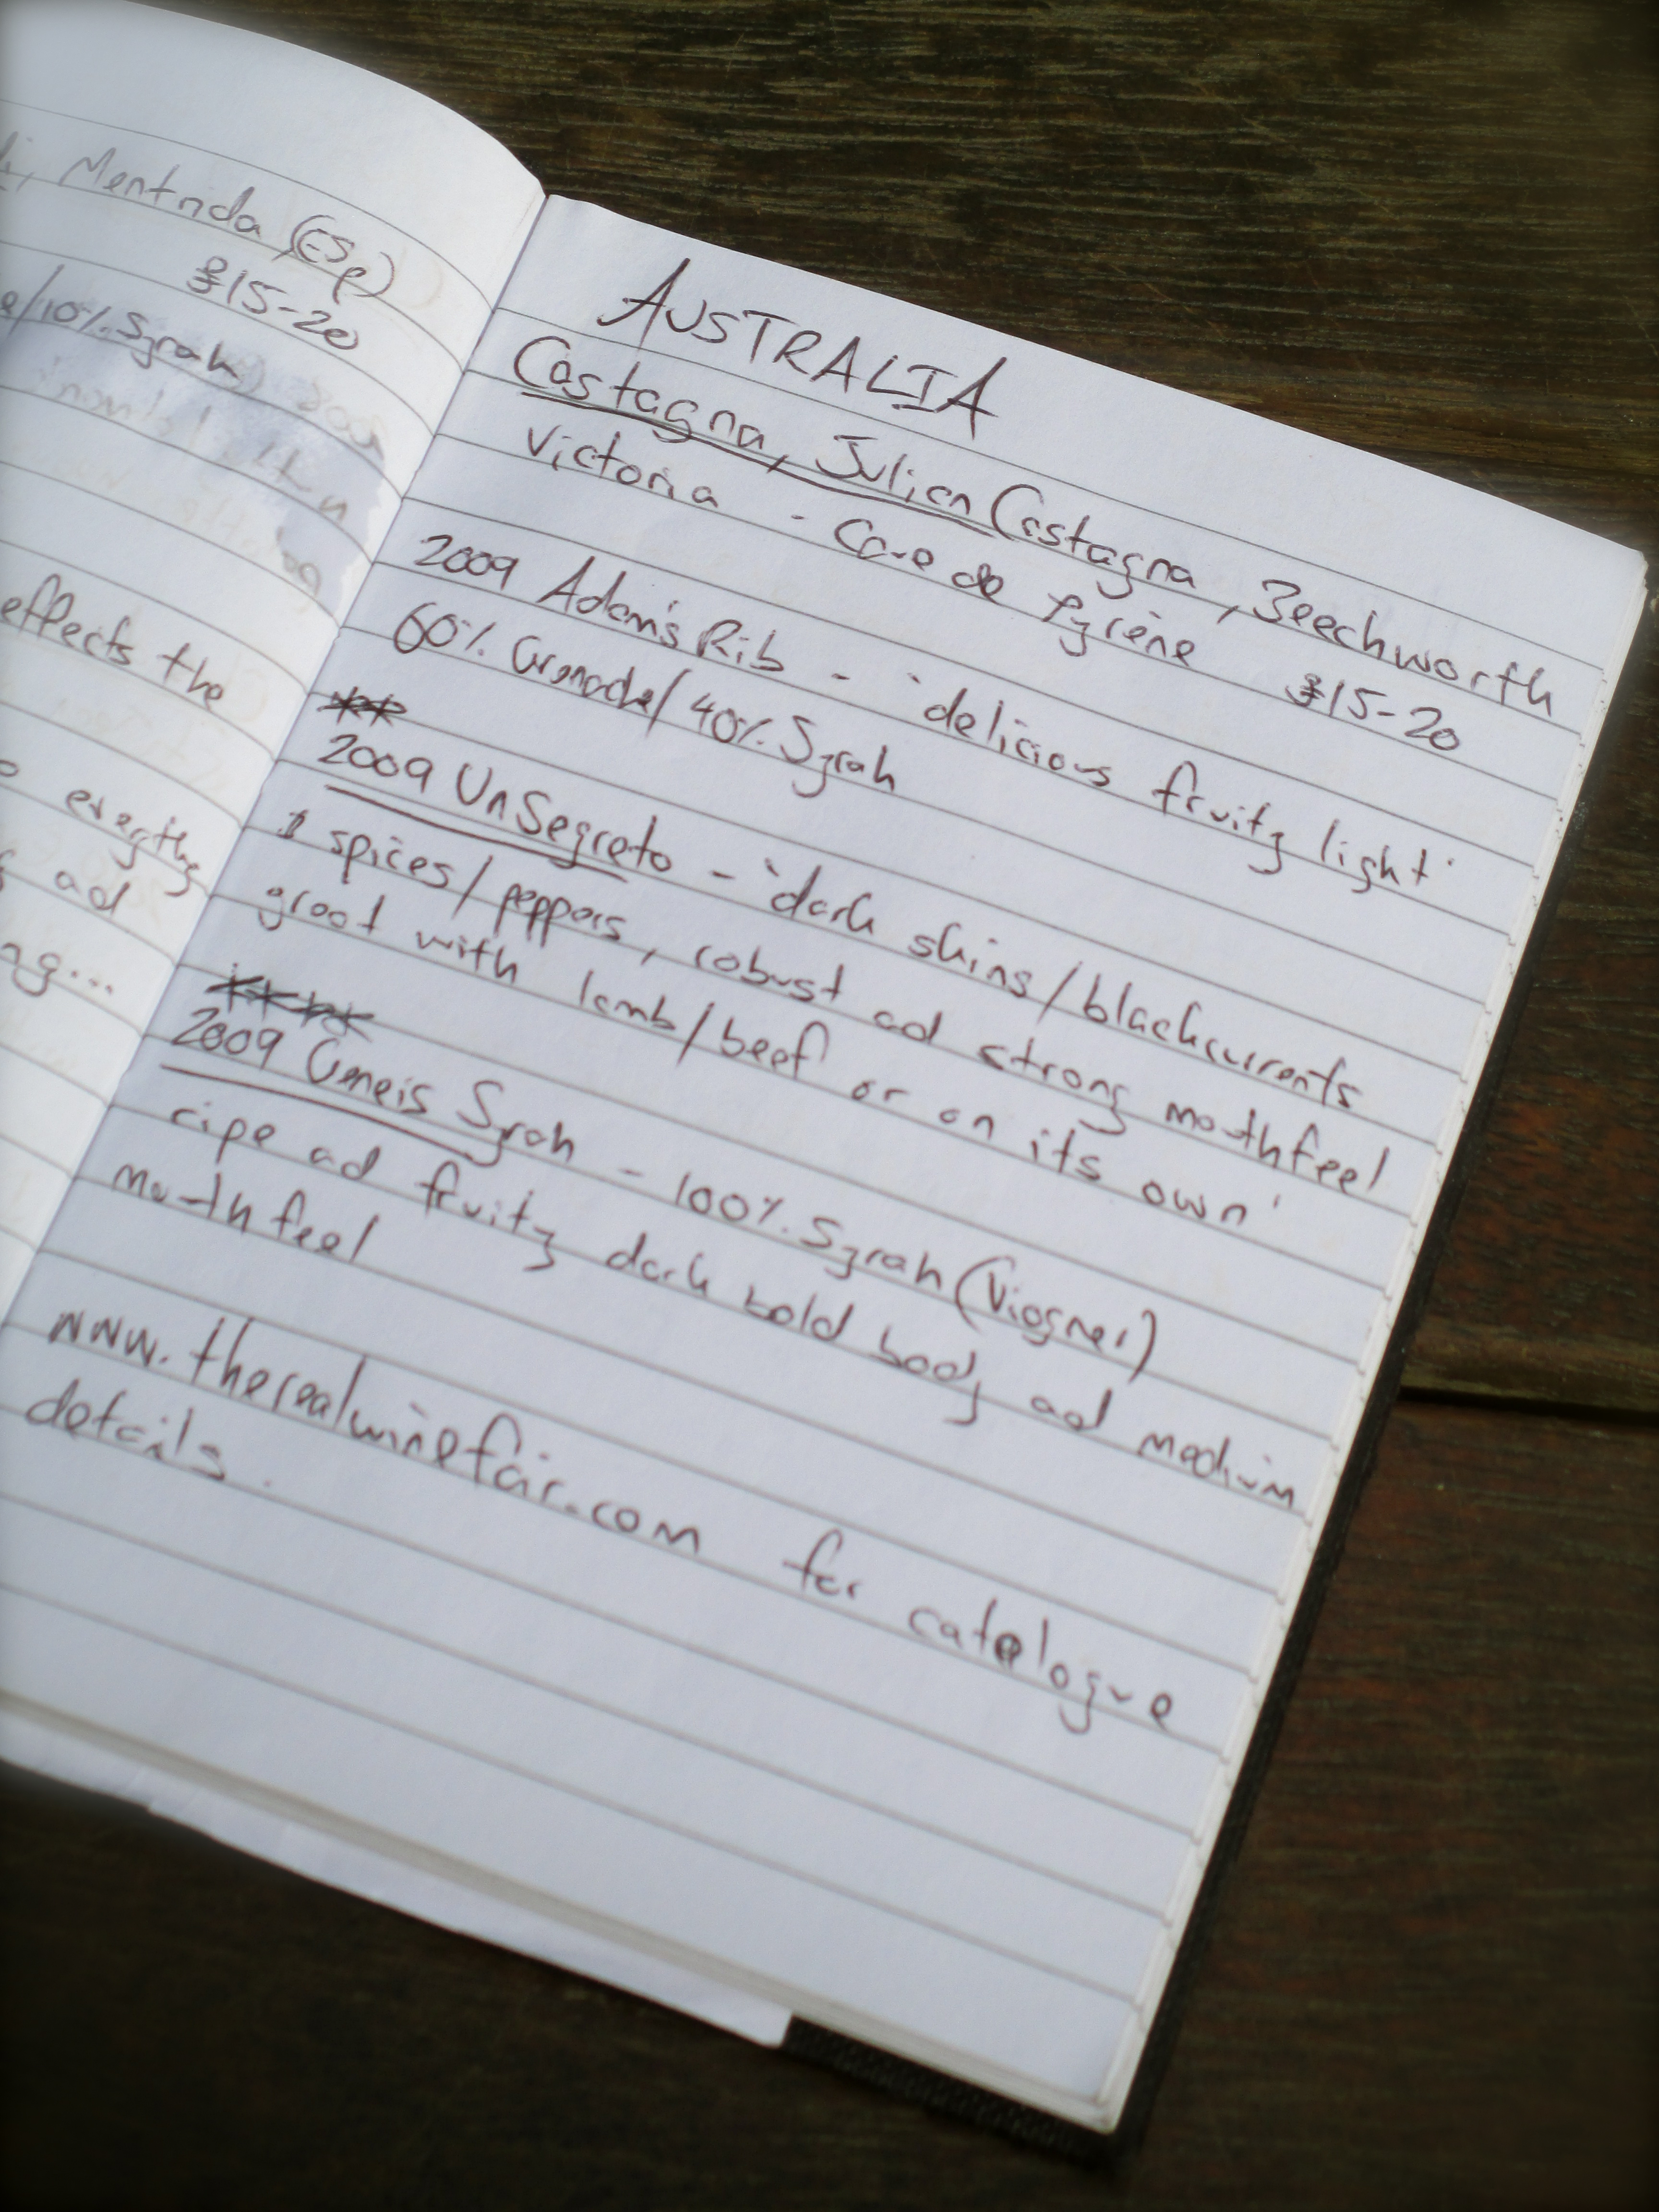 Mentrida (Esp)
£15-20
/10% Syrah)
effects the
everything
ad
ng...
AUSTRALIA
Castagna, Julian Castagna, Beechworth
Victoria - Cave de Pyrène £15-20
2009 Adam's Rib - 'delicious fruity light'
60% Grenache/40% Syrah
**
2009 UnSegreto - 'dark skins/blackcurrents
& spices/peppers, robust ad strong mouthfeel
great with lamb/beef or on its own'
****
2009 Geneis Syrah - 100% Syrah (Viogner)
ripe ad fruity dark bold body ad medium
mouthfeel
www.therealwinefair.com for catalogue
details.